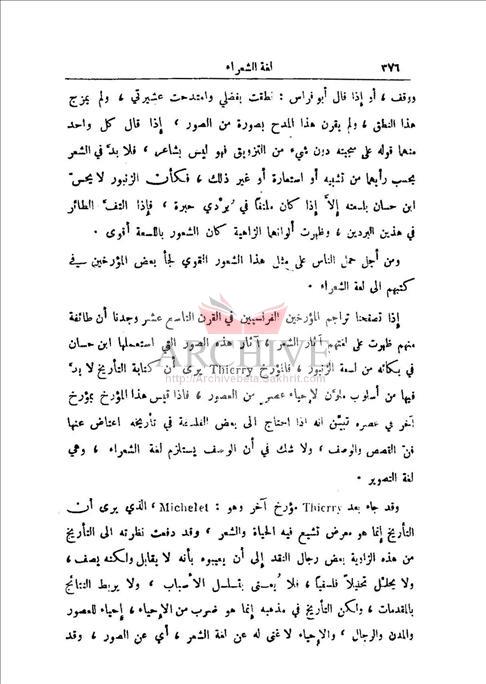 ٣٧٦ لغة الشعراء
ووقف ، أو إذا قال أبو فراس : نطقت بفضلي وامتدحت عشيرتي ، ولم يمزج
هذا النطق ، ولم يقرن هذا المدح بصورة من الصور ، إذا قال كل واحد
منهما قوله على سجيته دون شيء من التزويق فهو ليس بشاعر ، فلا بدَّ في الشعر
بحسب رأيهما من تشبيه أو استعارة أو غير ذلك ، فكأن الزنبور لا يحسّ
ابن حسان بلسعته إلاَّ إذا كان ملتفاً في بُردي حبرة ، فإذا التفَّ الطائر
في هذين البردين ، وظهرت ألوانها الزاهية كان الشعور باللسعة أقوى .
ومن أجل حمل الناس على مثل هذا الشعور القوي لجأ بعض المؤرخين في
كتبهم الى لغة الشعراء .
إذا تصفحنا تراجم المؤرخين الفرنسيين في القرن التاسع عشر وجدنا أن طائفة
منهم ظهرت على لغتهم آثار الشعر ، آثار هذه الصور التي استعملها ابن حسان
في بكائه من لسعة الزنبور ، فالمؤرخ Thierry يرى أن كتابة التأريخ لا بدَّ
فيها من أسلوب ملوَّن لإحياء عصر من العصور ، فاذا قيس هذا المؤرخ بمؤرخ
آخر في عصره تبيَّن انه اذا احتاج الى بعض الفلسفة في تأريخه اعتاض عنها
فنّ القصص والوصف ، ولا شك في أن الوصف يستلزم لغة الشعراء ، وهي
لغة التصوير .
وقد جاء بعد Thierry مؤرخ آخر وهو : Michelet ، الذي يرى أن
التأريخ إنما هو معرض تشيع فيه الحياة والشعر ، وقد دفعت نظرته الى التأريخ
من هذه الزاوية بعض رجال النقد إلى أن يعيبوه بأنه لا يقابل ولكنه يصف ،
ولا يحلّل تحليلاً فلسفياً ، فلا يُعنى بتسلسل الأسباب ، ولا يربط النتائج
بالمقدمات ، ولكن التأريخ في مذهبه إنما هو ضرب من الإحياء ، إحياء للعصور
والمدن والرجال ، والإحياء لا غنى له عن لغة الشعر ، أي عن الصور ، وقد
ARCHIVE
http://Archivebeta.Sakhrit.com